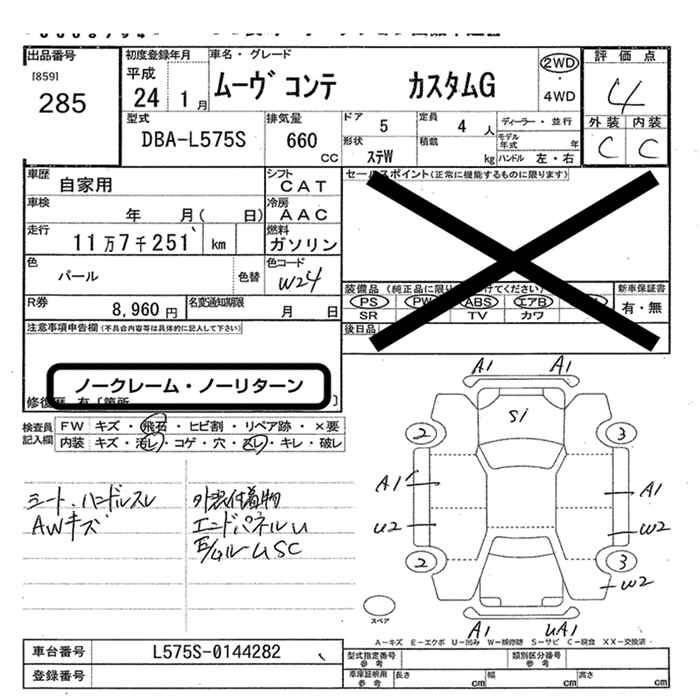 出品番号
[859]
285
初度登録年月
平成
24 1月
車名・グレード
ムーヴ コンテ カスタムG
2WD
・
4WD
評価点
4
外装 内装
C C
型式
DBA-L575S
排気量
660
CC
ドア
5
定員
4 人
形状
ステW
積載
kg
ディーラー・並行
モデル年式 年
ハンドル 左・右
車歴
自家用
シフト
CAT
車検
年 月( 日)
冷房
AAC
走行
11万7千251 km
燃料
ガソリン
色
パール
色替
色コード
W24
R券
8,960円
名変通知期限
月 日
セールスポイント(正常に機能するものに限ります)
装備品
PS PW ABS エアB
SR TV カワ
新車保証書
有・無
後日品
注意事項申告欄(不具合内容等は具体的に記入して下さい)
ノークレーム・ノーリターン
検査員
記入欄
FW キズ・飛石・ヒビ割・リペア跡・×要
内装 キズ・汚レ・コゲ・穴・スレ・キレ・破レ
シート・ハンドルスレ
AWキズ
外装付着物
エンドパネルU
E/ルームSC
A1 A1
Si
2 3
A1 A1
U2 W2
2 3
W2
A1 UA1
スペア
A-キズ E-エクボ U-凹み W-補修跡 S-サビ C-腐食 XX-交換済
車台番号
L575S-0144282
登録番号
型式指定番号
参考
類別区分番号
参考
車庫証明用
参考
長さ cm 幅 cm 高さ cm